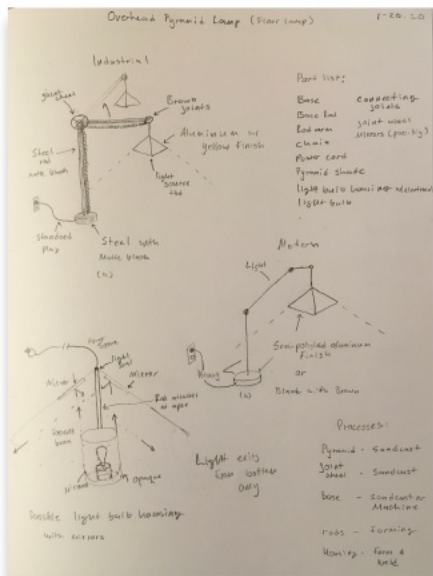 Overhead Pyramid Lamp (Floor lamp)
Industrial
joint wheel
Brown joints
Aluminum w/
yellow finish
Steel
rod
matte black
light
source
tbd
standard
plug
Steel with
Matte black
(a)
Part list:
Base
Base Rod
Rod arm
chain
Power cord
Pyramid shade
light bulb housing
light bulb
connecting
joints
joint wheel
mirrors (possibly)
Modern
Light
Heavy
Semi-polished aluminum
finish
or
Black with Brown
(b)
Power
source
light
seal
mirror
mirror
Rod attaches
opaque
Light exits
from bottom
only
Possible light bulb housing
with mirrors
Processes:
Pyramid - Sandcast
Joint
wheel - Sandcast
base - Sandcast or
Machine
rods - Forming
Housing - form &
weld